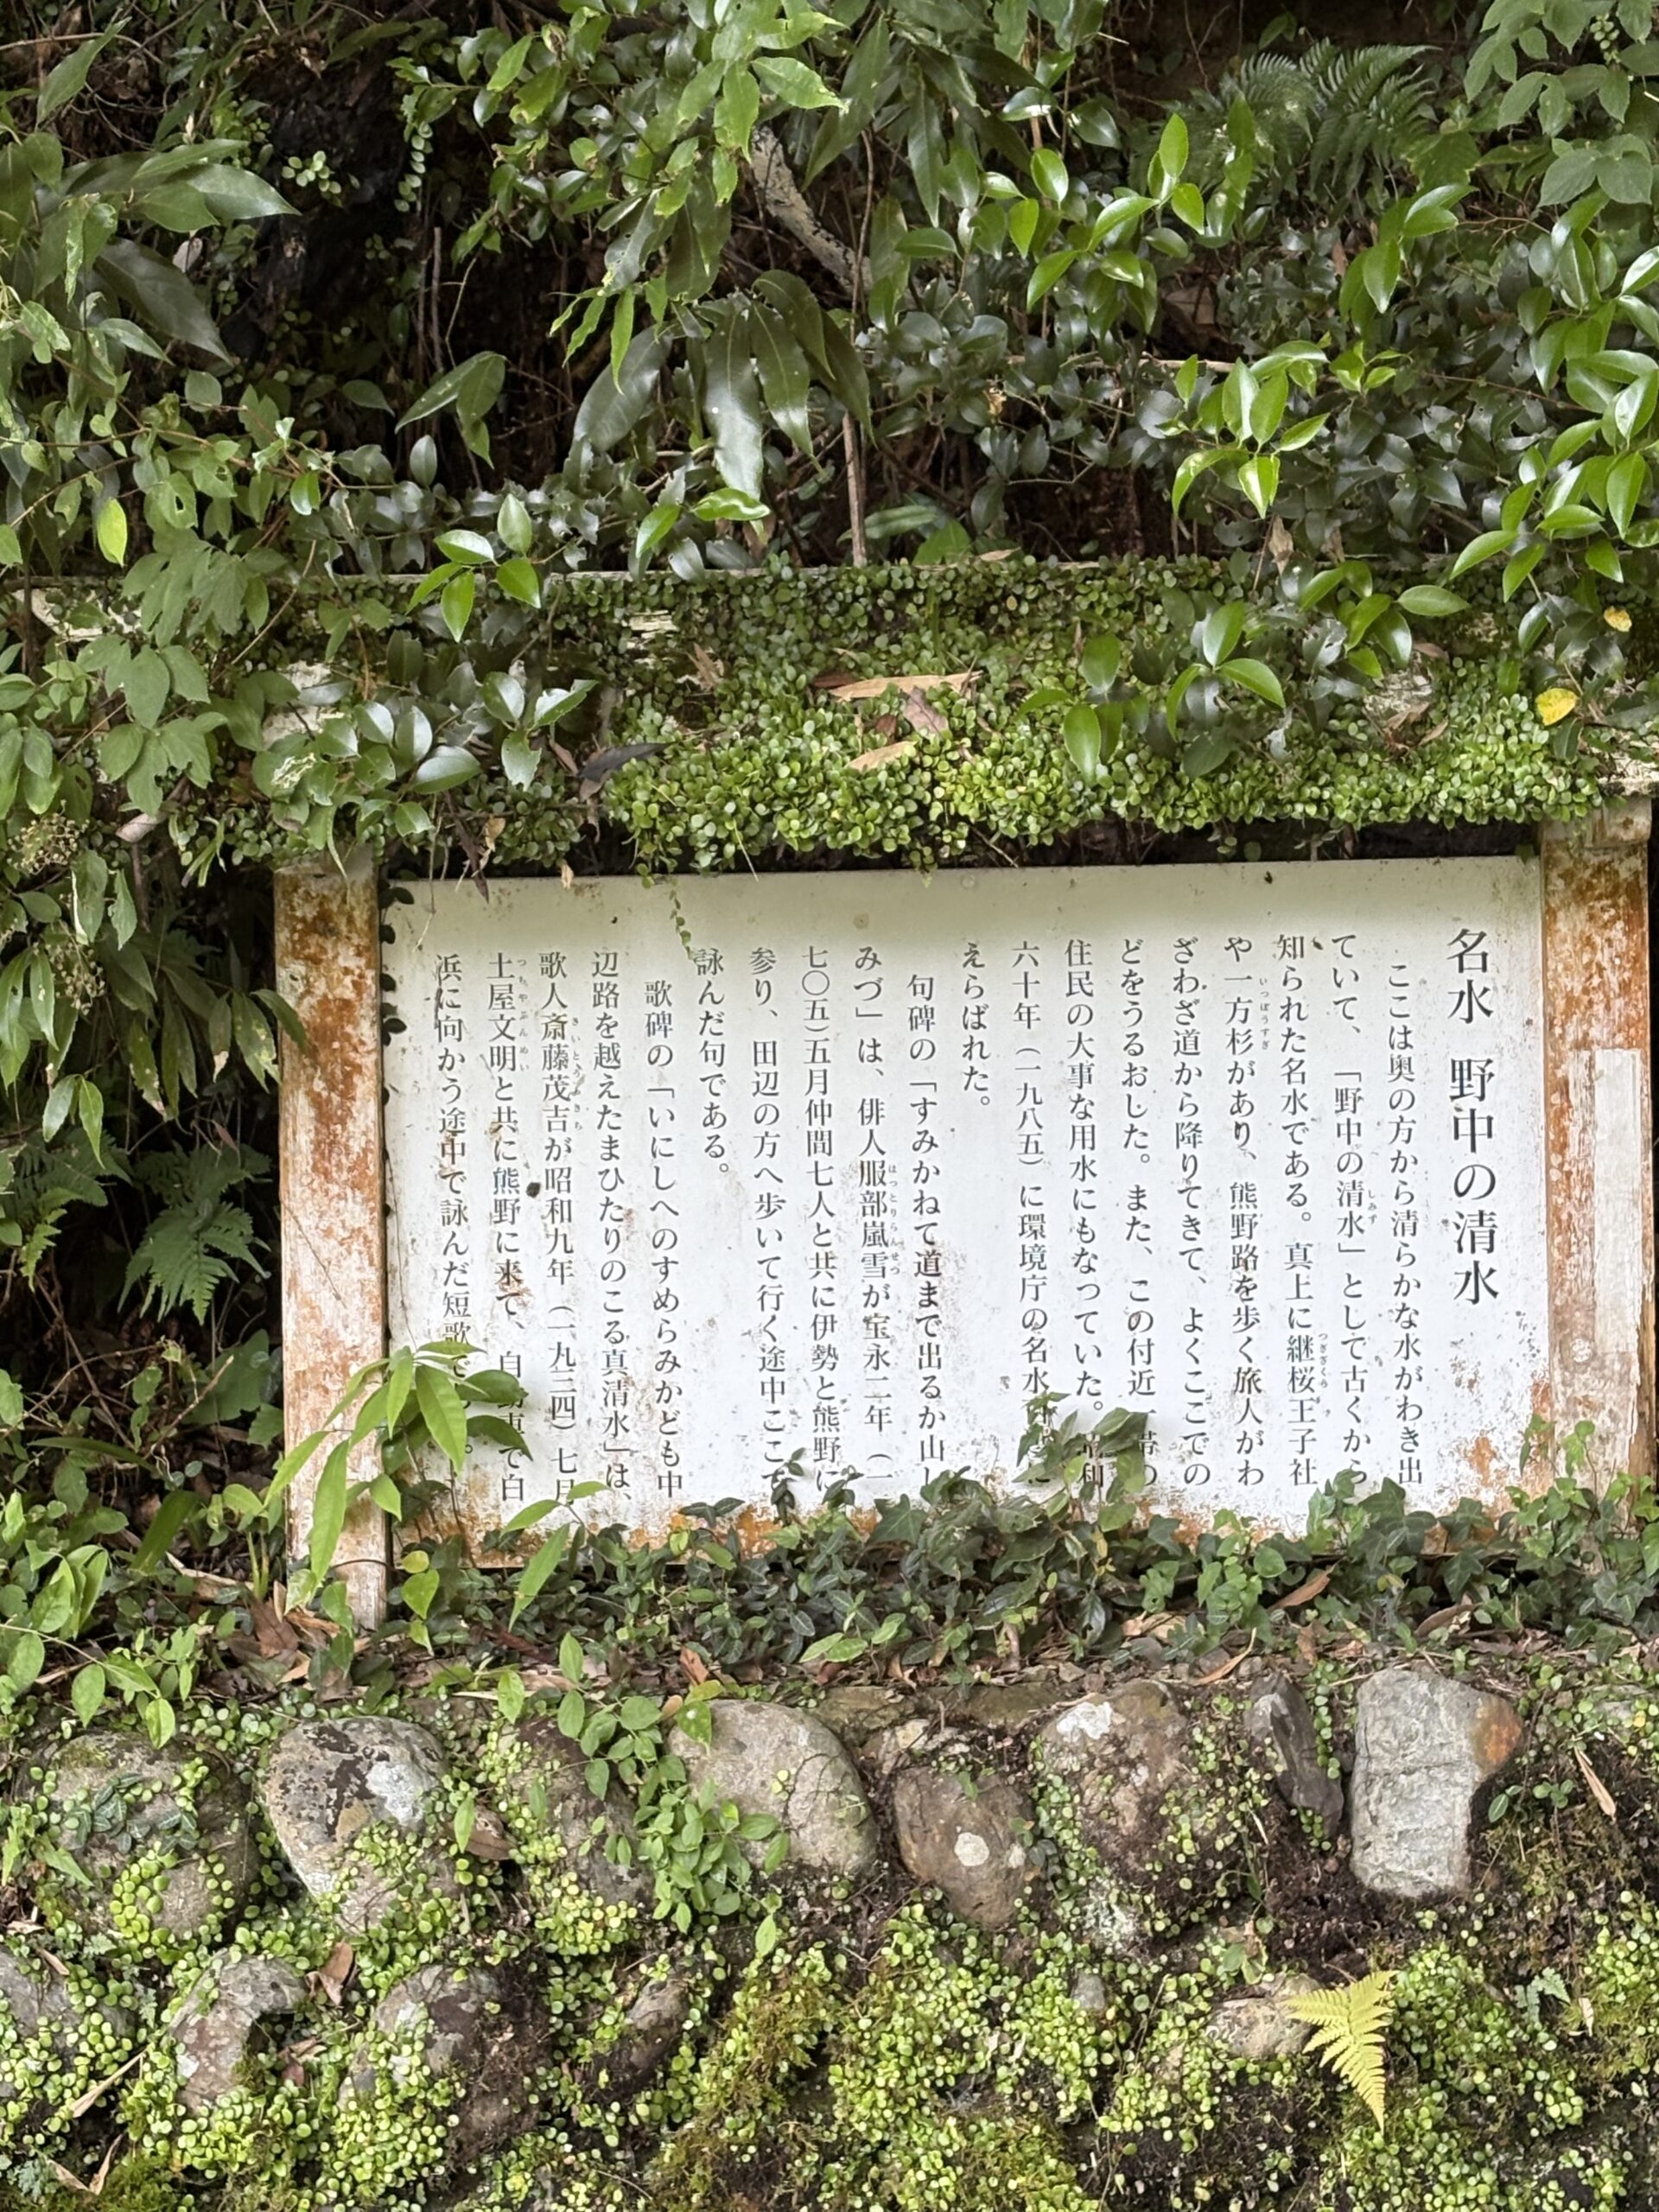 名水 野中の清水
ここは奥の方から清らかな水がわき出
ていて、「野中の清水」として古くから
知られた名水である。真上に継桜王子社
や一方杉があり、熊野路を歩く旅人がわ
ざわざ道から降りてきて、よくここでの
どをうるおした。また、この付近一帯の
住民の大事な用水にもなっていた。昭和
六十年(一九八五)に環境庁の名水
えらばれた。
句碑の「すみかねて道まで出るか山し
みづ」は、俳人服部嵐雪が宝永二年(一
七〇五)五月仲間七人と共に伊勢と熊野に
参り、田辺の方へ歩いて行く途中ここで
詠んだ句である。
歌碑の「いにしへのすめらみかども中
辺路を越えたまひたりのこる真清水」は、
歌人斎藤茂吉が昭和九年(一九三四)七月
土屋文明と共に熊野に来て、自動車で白
浜に向かう途中で詠んだ短歌で